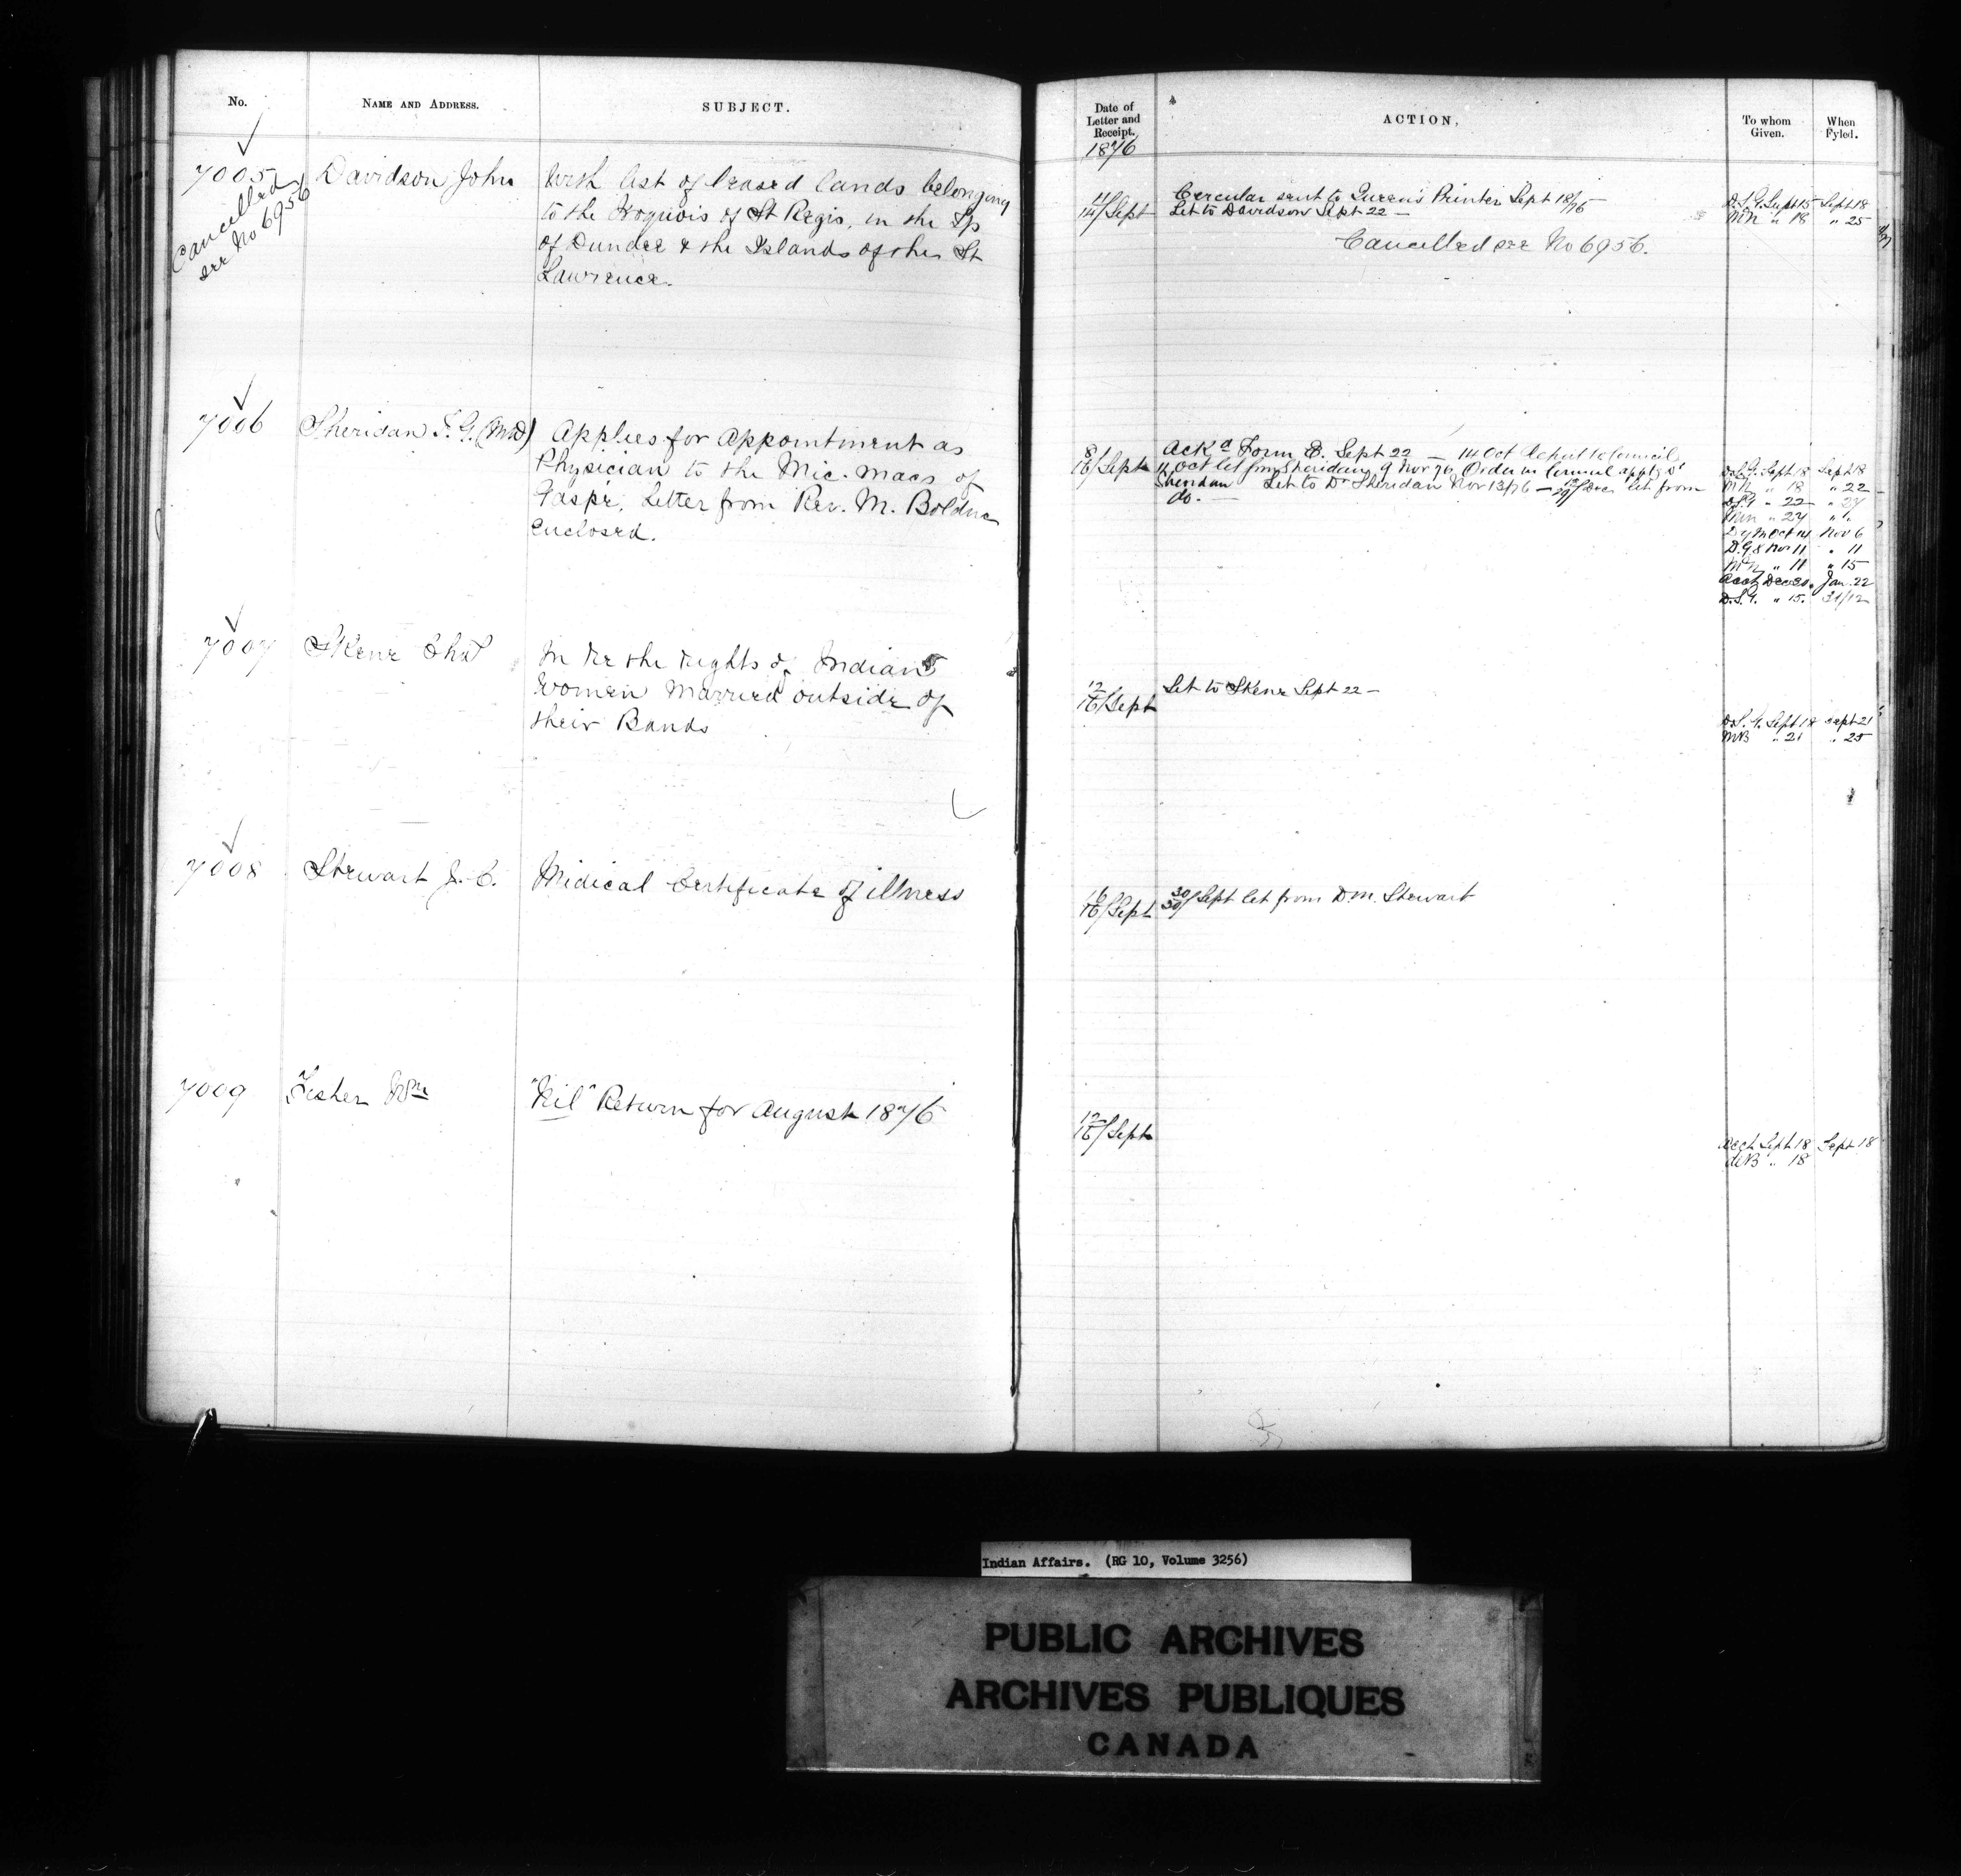 No. NAME AND ADDRESS. SUBJECT.
7005 Davidson John With list of leased lands belonging
Cancelled
see No 6956
to the Iroquois of St Regis, in the Tp
of Dundee & the Islands of the St
Lawrence.
7006 Sheridan (MD) Applies for appointment as
Physician to the Mic-macs of
Gaspé, Letter from Rev. M. Bolduc
enclosed.
7007 Skene Thos In re the rights of Indian
women married outside of
their Bands
7008 Stewart J. C. Midical Certificate of illness
7009 Fisher Wm "Nil" Return for August 1876
Date of
Letter and
Receipt.
ACTION,
To whom
Given.
When
Fyled.
1876
11
14/Sept
Circular sent to Queen's Printer Sept 18/76
Let to Davidson Sept 22 —
Cancelled see No 6956.
D.S.G. Sept 15 Sept 18
" 18 " 25
8
16/Sept
Ackd Form E. Sept 22 — 14 Oct Report to Council
Oct let from Sheridan, 9 Nov 76, Order in Council apptg Dr
Sheridan Let to Dr Sheridan Nov 13/76 — Dec let from
do. —
D.S.G. Sept 18 Sept 18
" 18 " 22
D.S.G " 22 " 27
" 27 "
Oct 14 Nov 6
Nov 11 " 11
" 11 " 15
Acct Dec 30. Jan. 22
D.S.G. " 15. 31/12
12
16/Sept
Let to Skene Sept 22 —
D.S.G. Sept 18 Sept 21
MB " 21 " 25
16/Sept
30
30/Sept let from D.M. Stewart
12
16/Sept
Acct Sept 18 Sept 18
" 18
Indian Affairs. (RG 10, Volume 3256)
PUBLIC ARCHIVES
ARCHIVES PUBLIQUES
CANADA